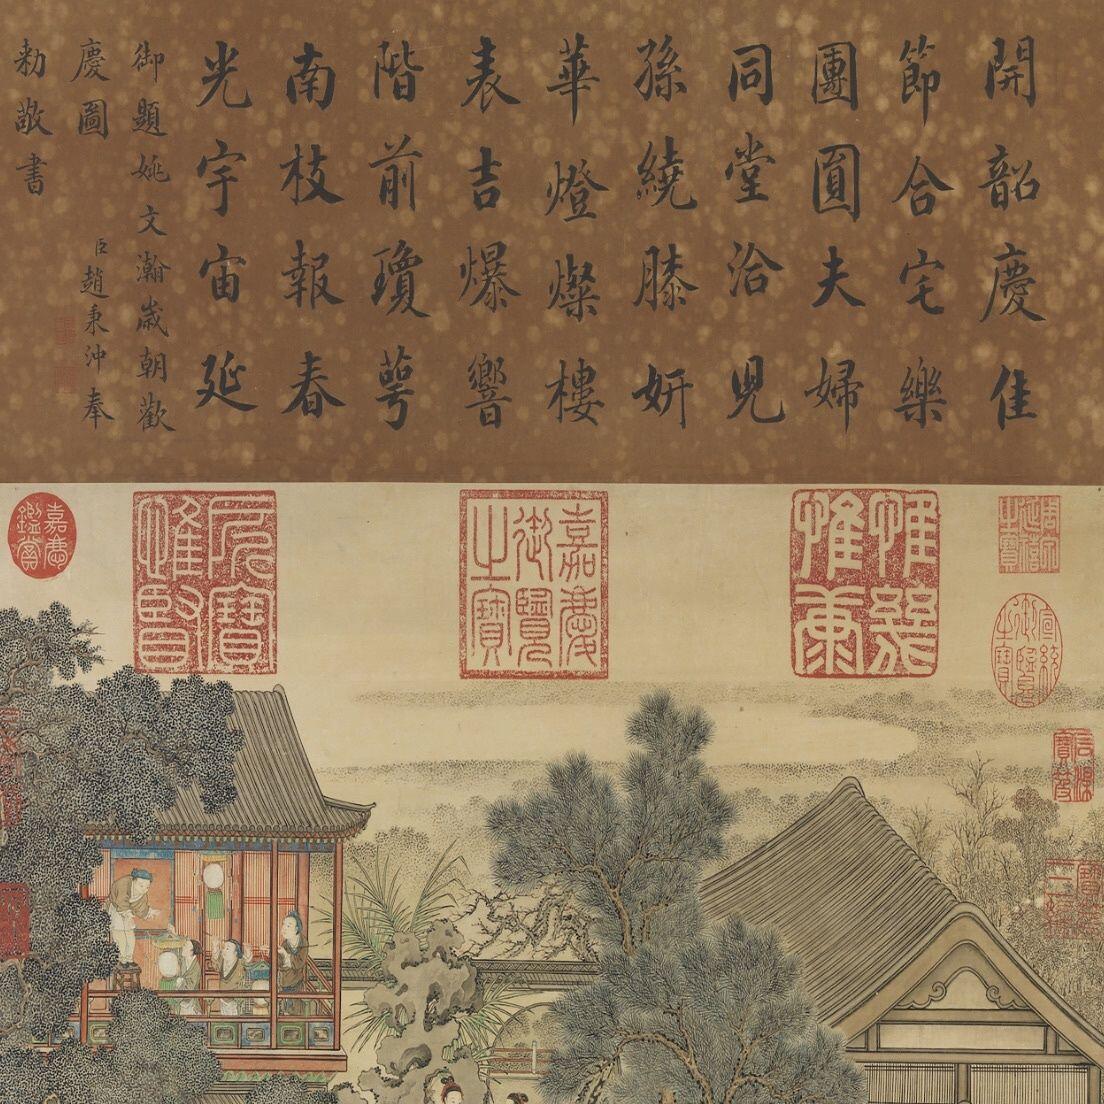 開韶慶佳
節合宅樂
團圓夫婦
同堂洽兒
孫繞膝妍
華燈燦樓
表吉爆響
階前瓊萼
南枝報春
光宇宙延
御題姚文瀚歲朝歡
慶圖
臣趙秉沖奉
勅敬書
宣統御覽之寶
惟幾惟康
嘉慶御覽之寶
所寶惟賢
嘉慶鑑賞